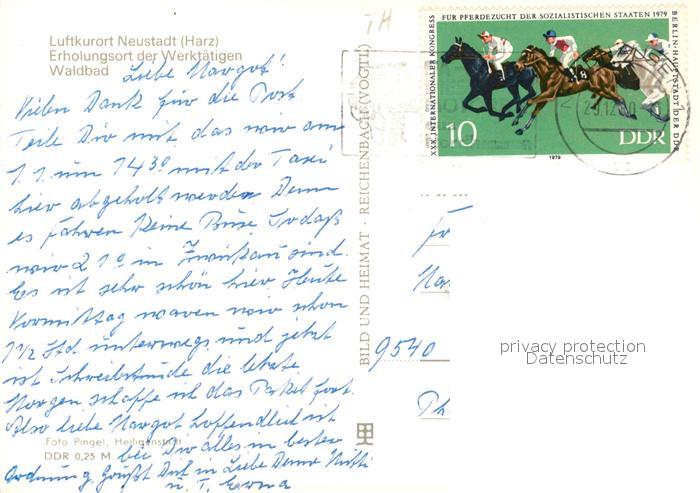 Luftkurort Neustadt (Harz)
Erholungsort der Werktätigen
Waldbad
Liebe Margot!
Vielen Dank für die Post
Teile Dir mit das wir am
1.1. um 14 30 mit der Taxi
hier abgeholt werden. Denn
es fahren keine Buse. So daß
wir 21 0 in Zwickau sind.
Es ist sehr schön hier. Heute
Vormittag waren wir schon
1 1/2 Std. unterwegs und jetzt
ist Schreibstunde die letzte.
Morgen schaffe ich das Paket fort.
Also liebe Margot hoffendlich ist
bei Dir alles in bester
Ordnung. Grüßt Dich in Liebe Deine Mutti
u. T. Erna
Foto Pingel, Heiligenstadt
DDR 0,25 M
BILD UND HEIMAT · REICHENBACH (VOGTL)
TH
XXX. INTERNATIONALER KONGRESS
FÜR PFERDEZUCHT DER SOZIALISTISCHEN STAATEN 1979
BERLIN-HAUPTSTADT DER DDR
10
DDR
1979
Fr
9540
privacy protection
Datenschutz